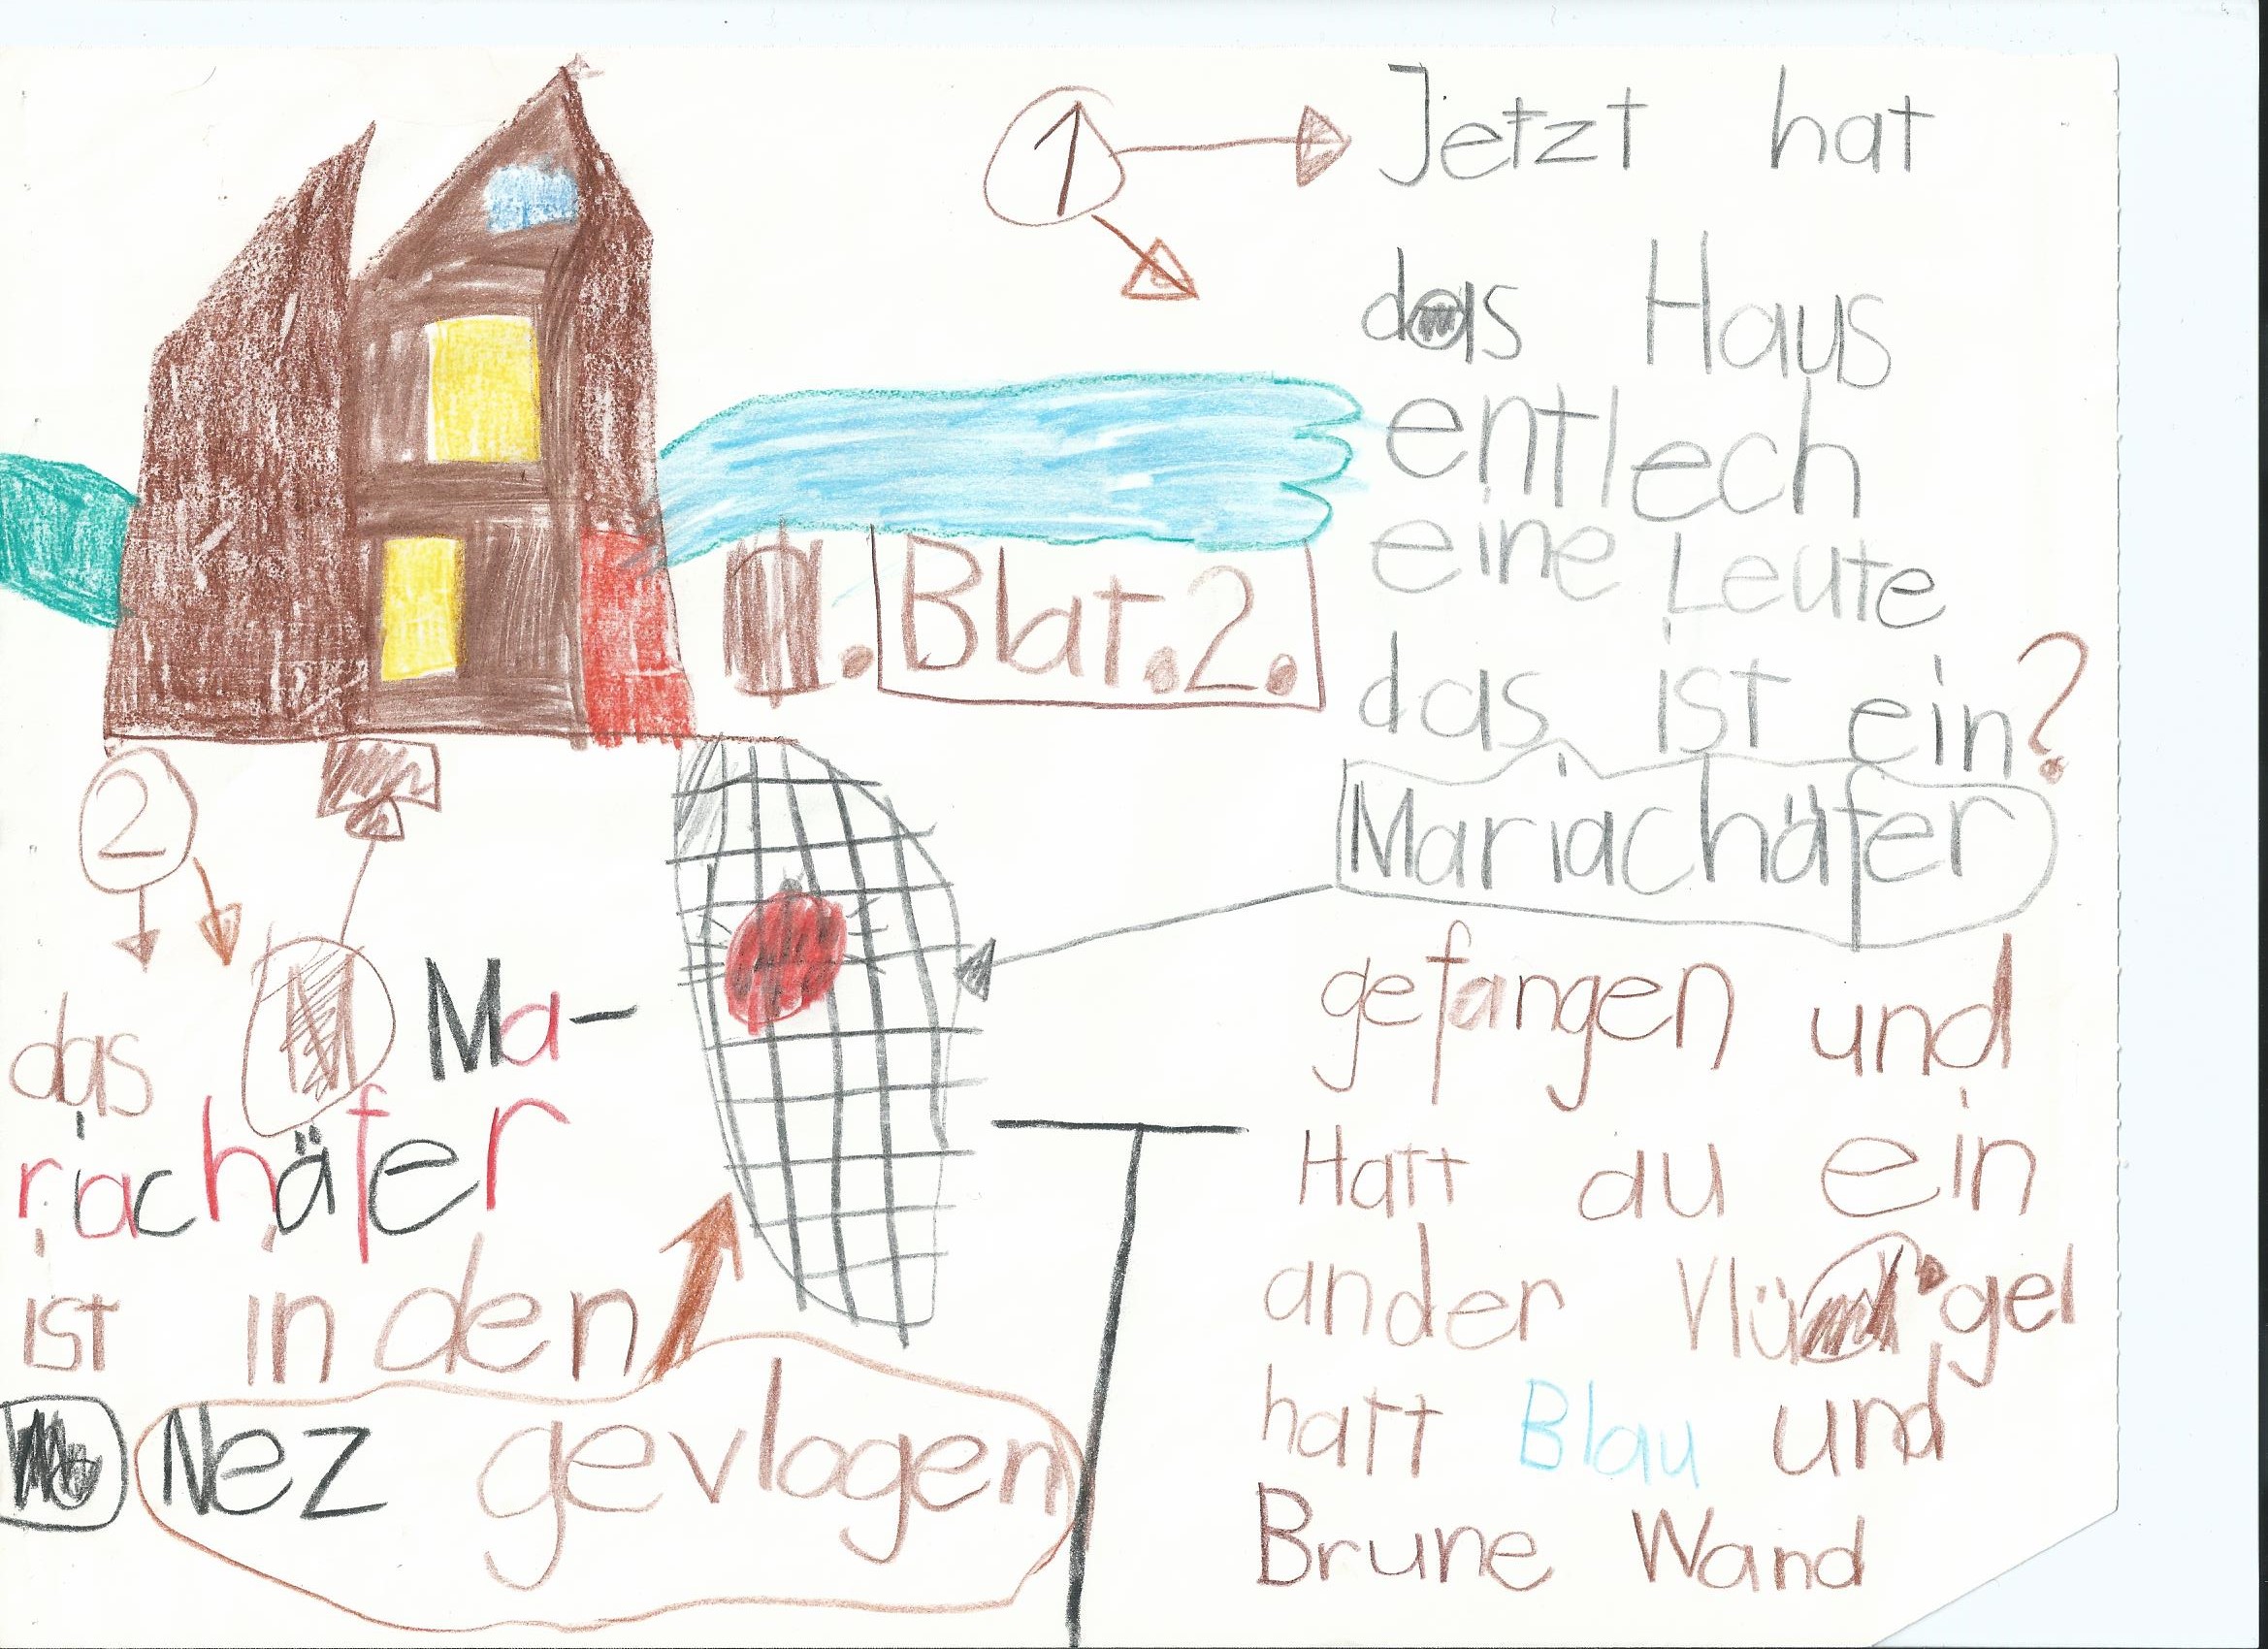 1 Jetzt hat
das Haus
entlech
eine Leute
das ist ein?
Mariachäfer
gefangen und
Hatt du ein
ander Vlügel
hatt Blau und
Brune Wand
Blat.2.
2
das Ma-
riachäfer
ist in den
Nez gevlogen